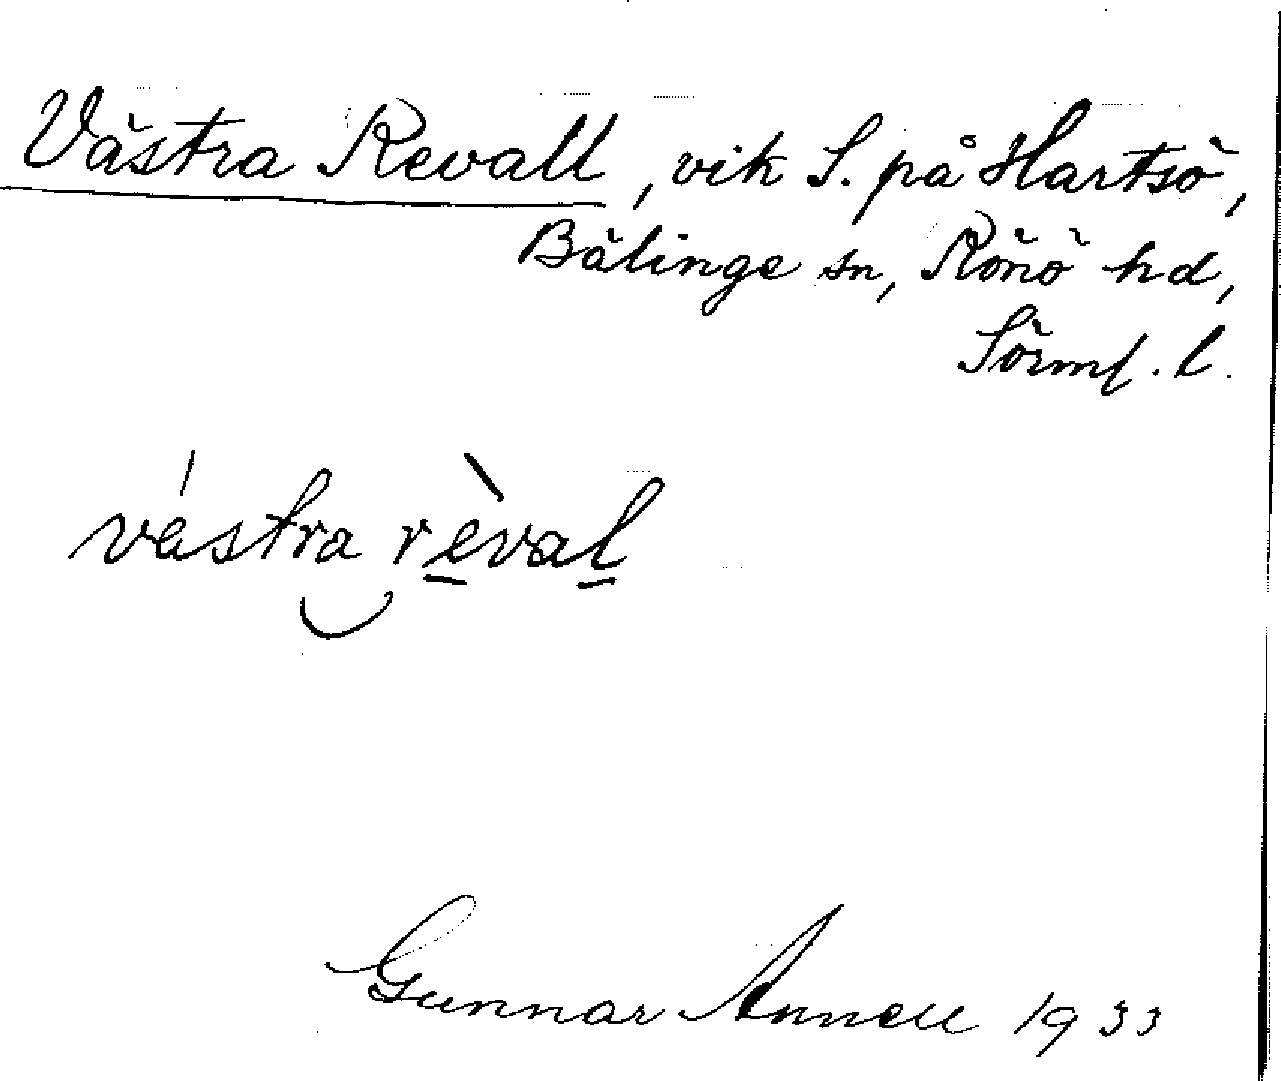 Västra Revall, vik S. på Hartsö,
Bälinge sn, Rönö hd,
Sörml. l.
västra rèval
Gunnar Annell 1933